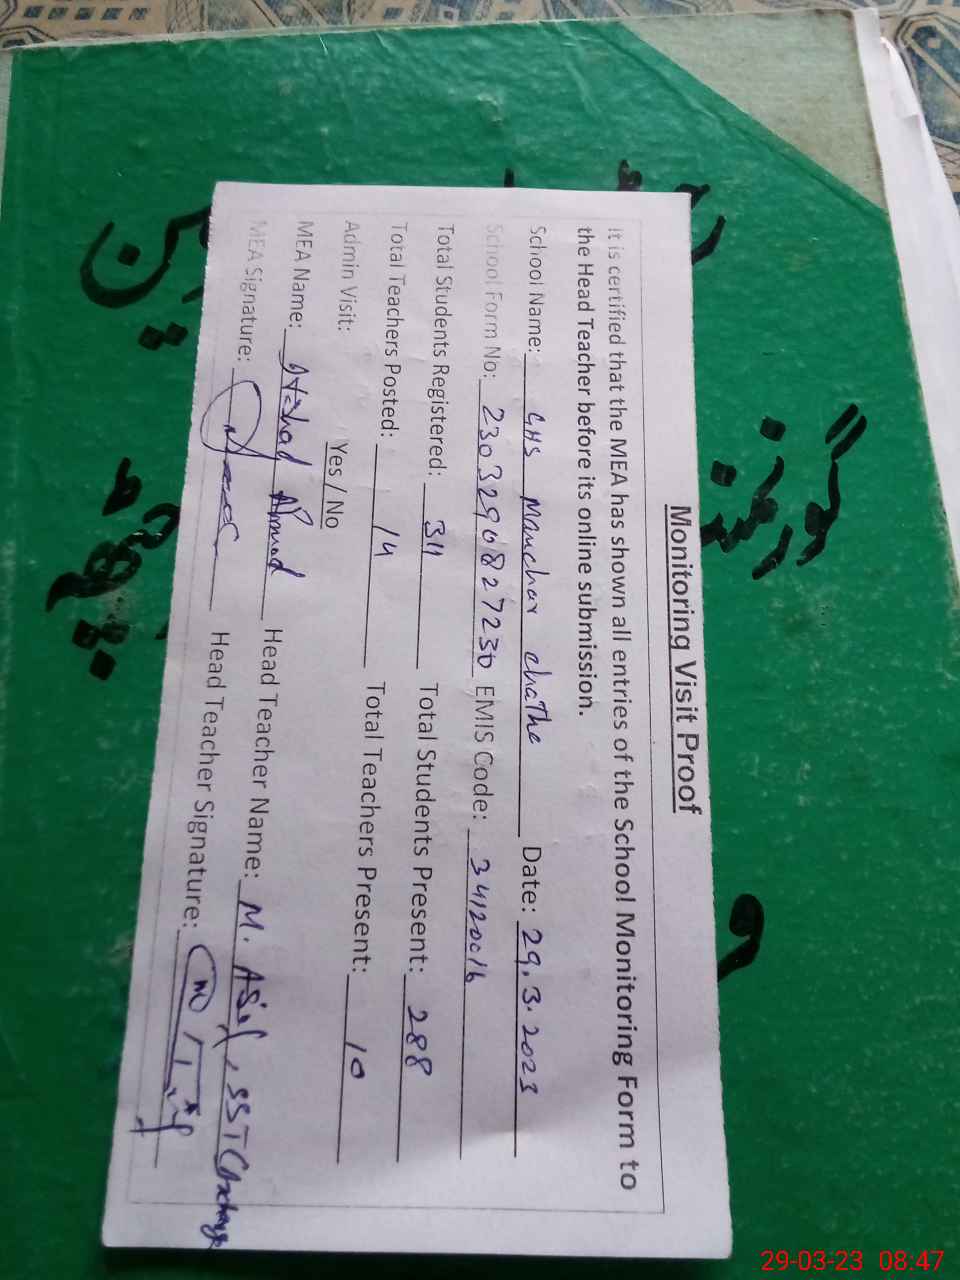 Monitoring Visit Proof
It is certified that the MEA has shown all entries of the School Monitoring Form to
the Head Teacher before its online submission.
School Name: GHS Manchar chatha Date: 29.3.2023
School Form No: 2303290827230 EMIS Code: 34120016
Total Students Registered: 311 Total Students Present: 288
Total Teachers Posted: 14 Total Teachers Present: 10
Admin Visit: Yes / No
MEA Name: Ahmad Head Teacher Name: M. Asif, SST
MEA Signature: Head Teacher Signature:
29-03-23 08:47